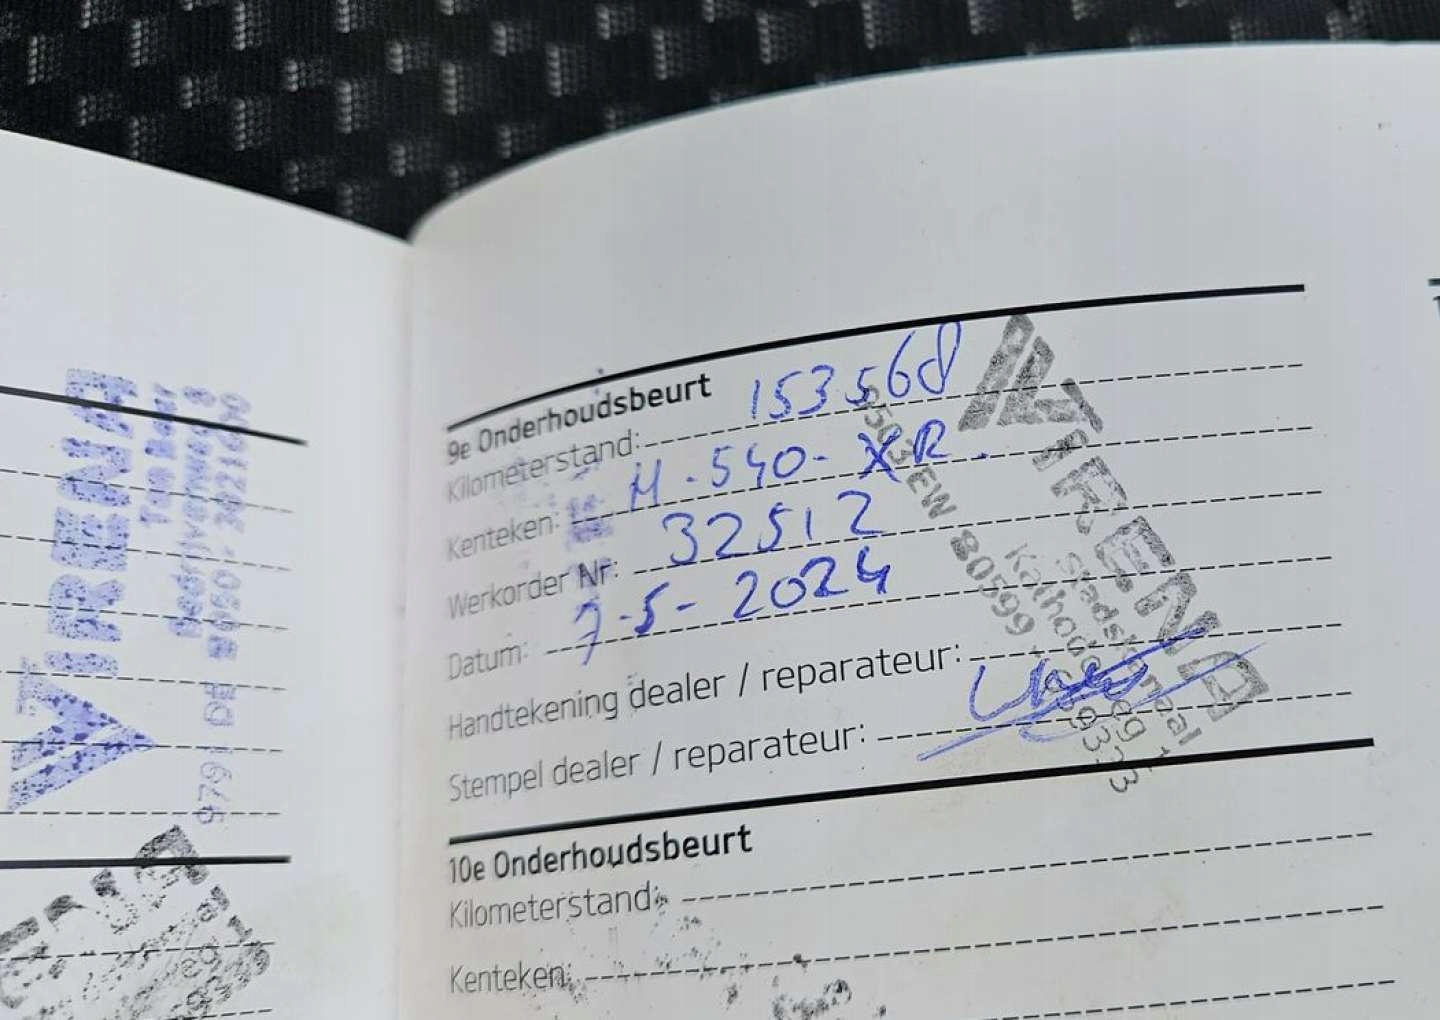 TRENA
Ten Boer
Bedrijvenweg 8
9791 DE
9e Onderhoudsbeurt
Kilometerstand: 153568
Kenteken: H-540-XR.
Werkorder Nr: 32512
Datum: 7-5-2024
Handtekening dealer / reparateur:
Stempel dealer / reparateur:
TRENA
Stadskanaal
Kathodeweg 1
9503 EW
10e Onderhoudsbeurt
Kilometerstand:
Kenteken: